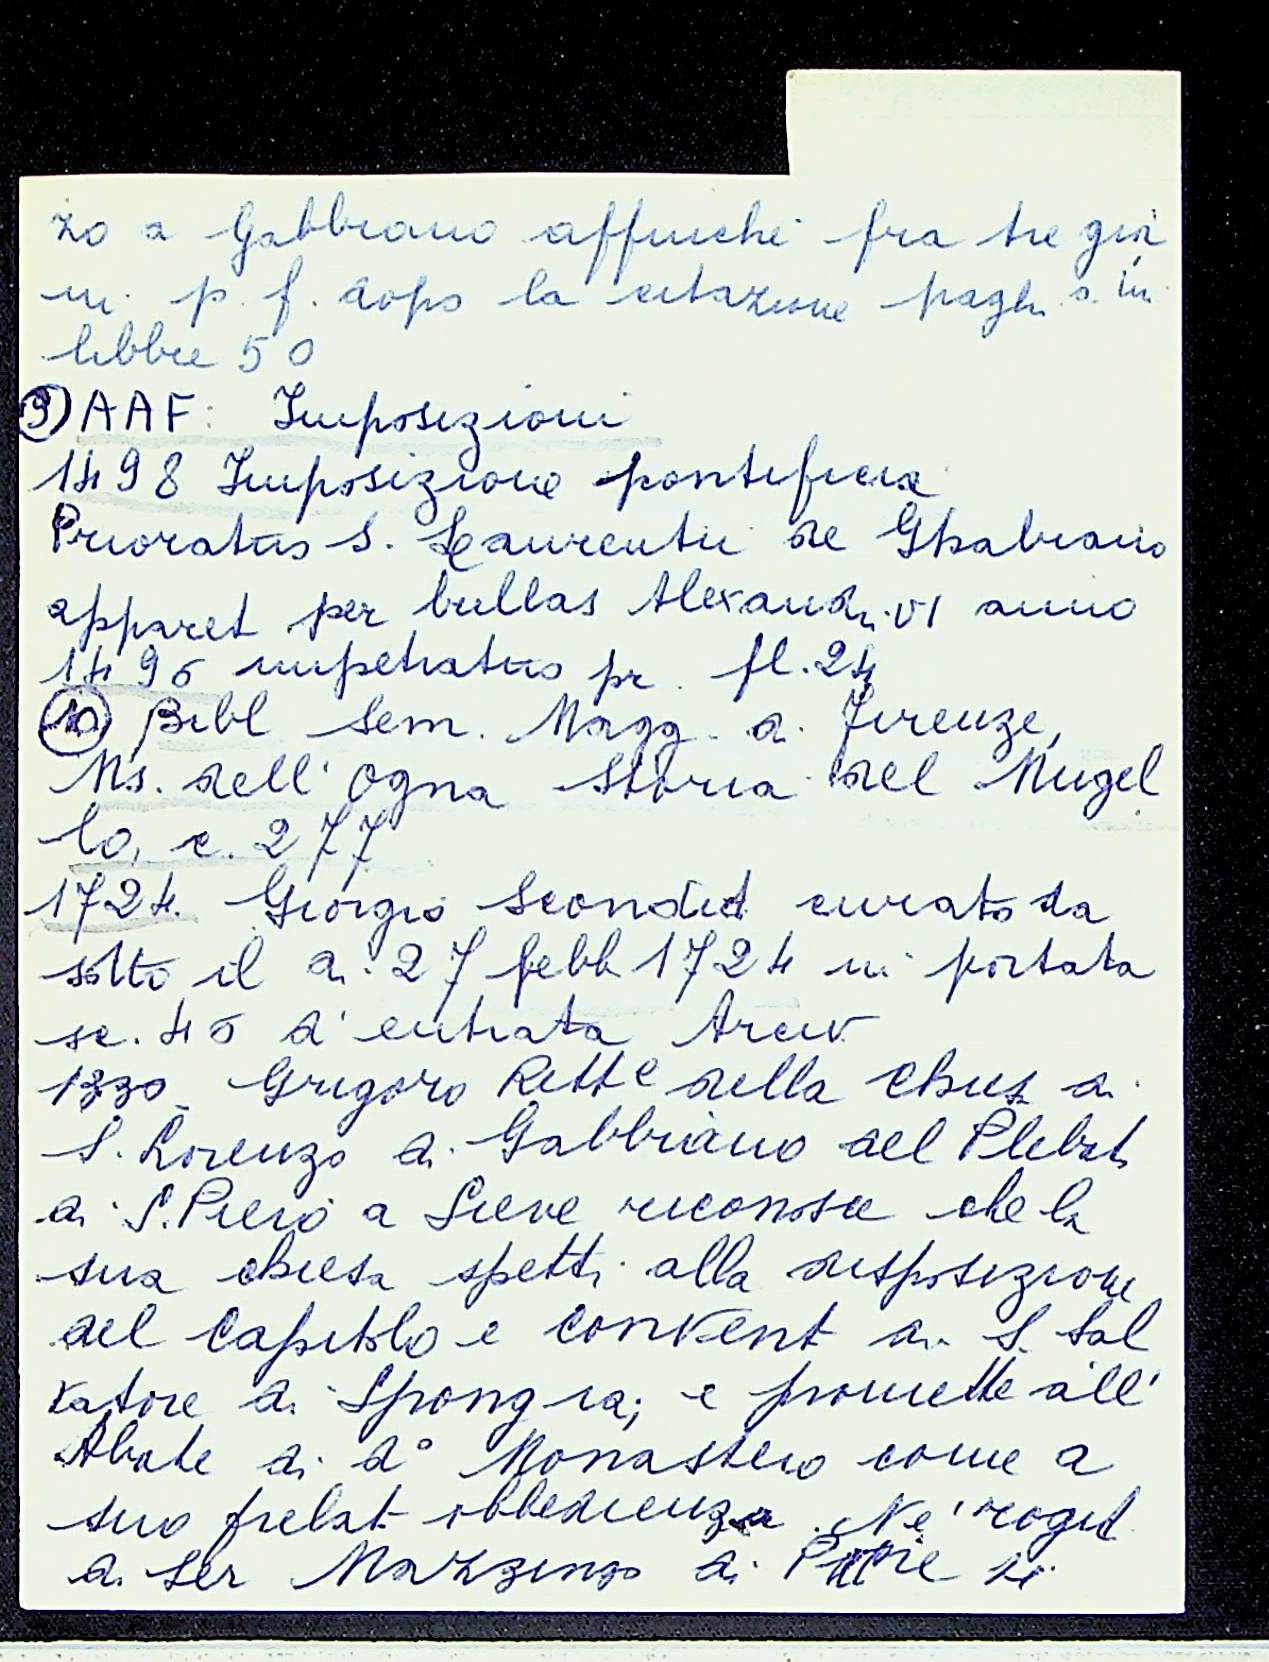 zo a Gabbiano affinché fra tre gior
ni p. f. dopo la citazione paghi s. in
libbre 50
9) AAF: Imposizioni
1498 Imposizione pontificia
Prioratus S. Laurentii de Ghabiano
apparet per bullas Alexandri VI anno
1496 impetratus pr. fl. 24
10 Bibl Sem. Magg. di Firenze,
Ms. dell'Ogna Storia del Mugel
lo, c. 277
1724. Giorgio curato da
sotto il di 27 febb 1724 in portata
sc. 46 d'entrata Arciv
1330 Grigoro Rett e della Chies di
S. Lorenzo di Gabbiano del Plebat
di S. Piero a Sieve riconosce che la
sua chiesa spetti alla disposizione
del Capitolo e Convent di S. Sal
vatore di Spongia; e promette all'
Abate di d° Monastero come a
suo prelat obbedienza. Ne' rogit
di Ser Mazzingo di